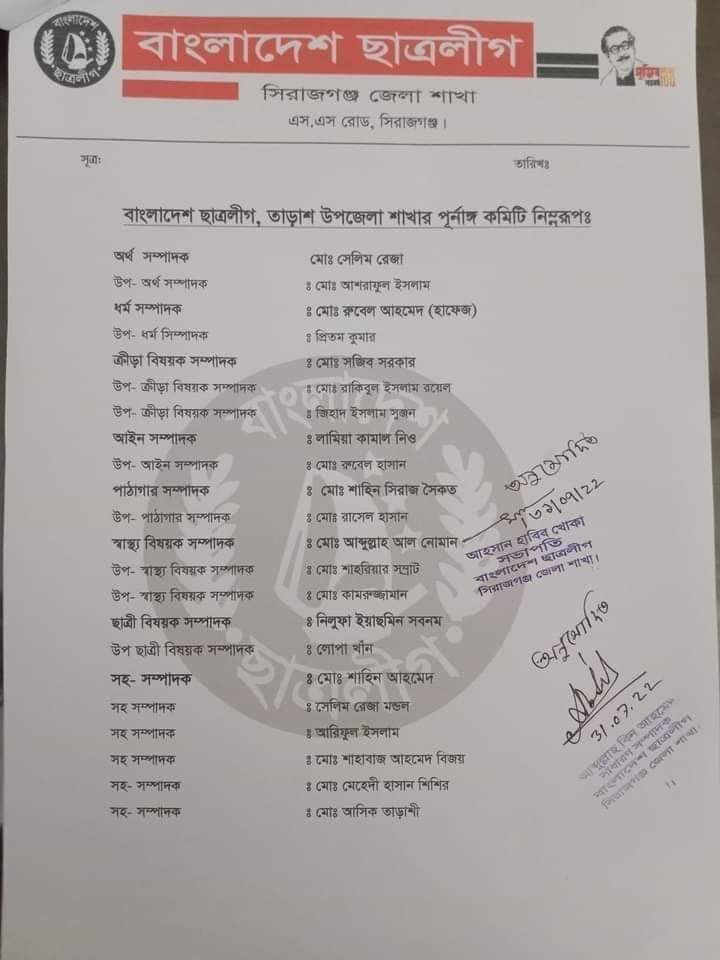 বাংলাদেশ
ছাত্রলীগ
বাংলাদেশ ছাত্রলীগ
মুজিব
১০০
সিরাজগঞ্জ জেলা শাখা
এস,এস রোড, সিরাজগঞ্জ।
সূত্রঃ তারিখঃ
বাংলাদেশ ছাত্রলীগ, তাড়াশ উপজেলা শাখার পূর্নাঙ্গ কমিটি নিম্নরূপঃ
অর্থ সম্পাদক মোঃ সেলিম রেজা
উপ- অর্থ সম্পাদক ঃ মোঃ আশরাফুল ইসলাম
ধর্ম সম্পাদক ঃ মোঃ রুবেল আহমেদ (হাফেজ)
উপ- ধর্ম সিম্পাদক ঃ প্রিতম কুমার
ক্রীড়া বিষয়ক সম্পাদক ঃ মোঃ সজিব সরকার
উপ- ক্রীড়া বিষয়ক সম্পাদক ঃ মোঃ রাকিবুল ইসলাম রয়েল
উপ- ক্রীড়া বিষয়ক সম্পাদক ঃ জিহাদ ইসলাম সুজন
আইন সম্পাদক ঃ লামিয়া কামাল নিও
উপ- আইন সম্পাদক ঃ মোঃ রুবেল হাসান
পাঠাগার সম্পাদক ঃ মোঃ শাহিন সিরাজ সৈকত
উপ- পাঠাগার সম্পাদক ঃ মোঃ রাসেল হাসান
স্বাস্থ্য বিষয়ক সম্পাদক ঃ মোঃ আব্দুল্লাহ আল নোমান
উপ- স্বাস্থ্য বিষয়ক সম্পাদক ঃ মোঃ শাহরিয়ার সম্রাট
উপ- স্বাস্থ্য বিষয়ক সম্পাদক ঃ মোঃ কামরুজ্জামান
ছাত্রী বিষয়ক সম্পাদক ঃ নিলুফা ইয়াছমিন সবনম
উপ ছাত্রী বিষয়ক সম্পাদক ঃ লোপা খাঁন
সহ- সম্পাদক ঃ মোঃ শাহিন আহমেদ
সহ সম্পাদক ঃ সেলিম রেজা মন্ডল
সহ সম্পাদক ঃ আরিফুল ইসলাম
সহ সম্পাদক ঃ মোঃ শাহাবাজ আহমেদ বিজয়
সহ- সম্পাদক ঃ মোঃ মেহেদী হাসান শিশির
সহ- সম্পাদক ঃ মোঃ আসিক তাড়াশী
বাংলাদেশ
ছাত্রলীগ
অনুমোদিত
৩১/০৭/২২
আহসান হাবিব খোকা
সভাপতি
বাংলাদেশ ছাত্রলীগ
সিরাজগঞ্জ জেলা শাখা।
অনুমোদিত
31.07.22
আব্দুল্লাহ বিন আহমেদ
সাধারণ সম্পাদক
বাংলাদেশ ছাত্রলীগ
সিরাজগঞ্জ জেলা শাখা.